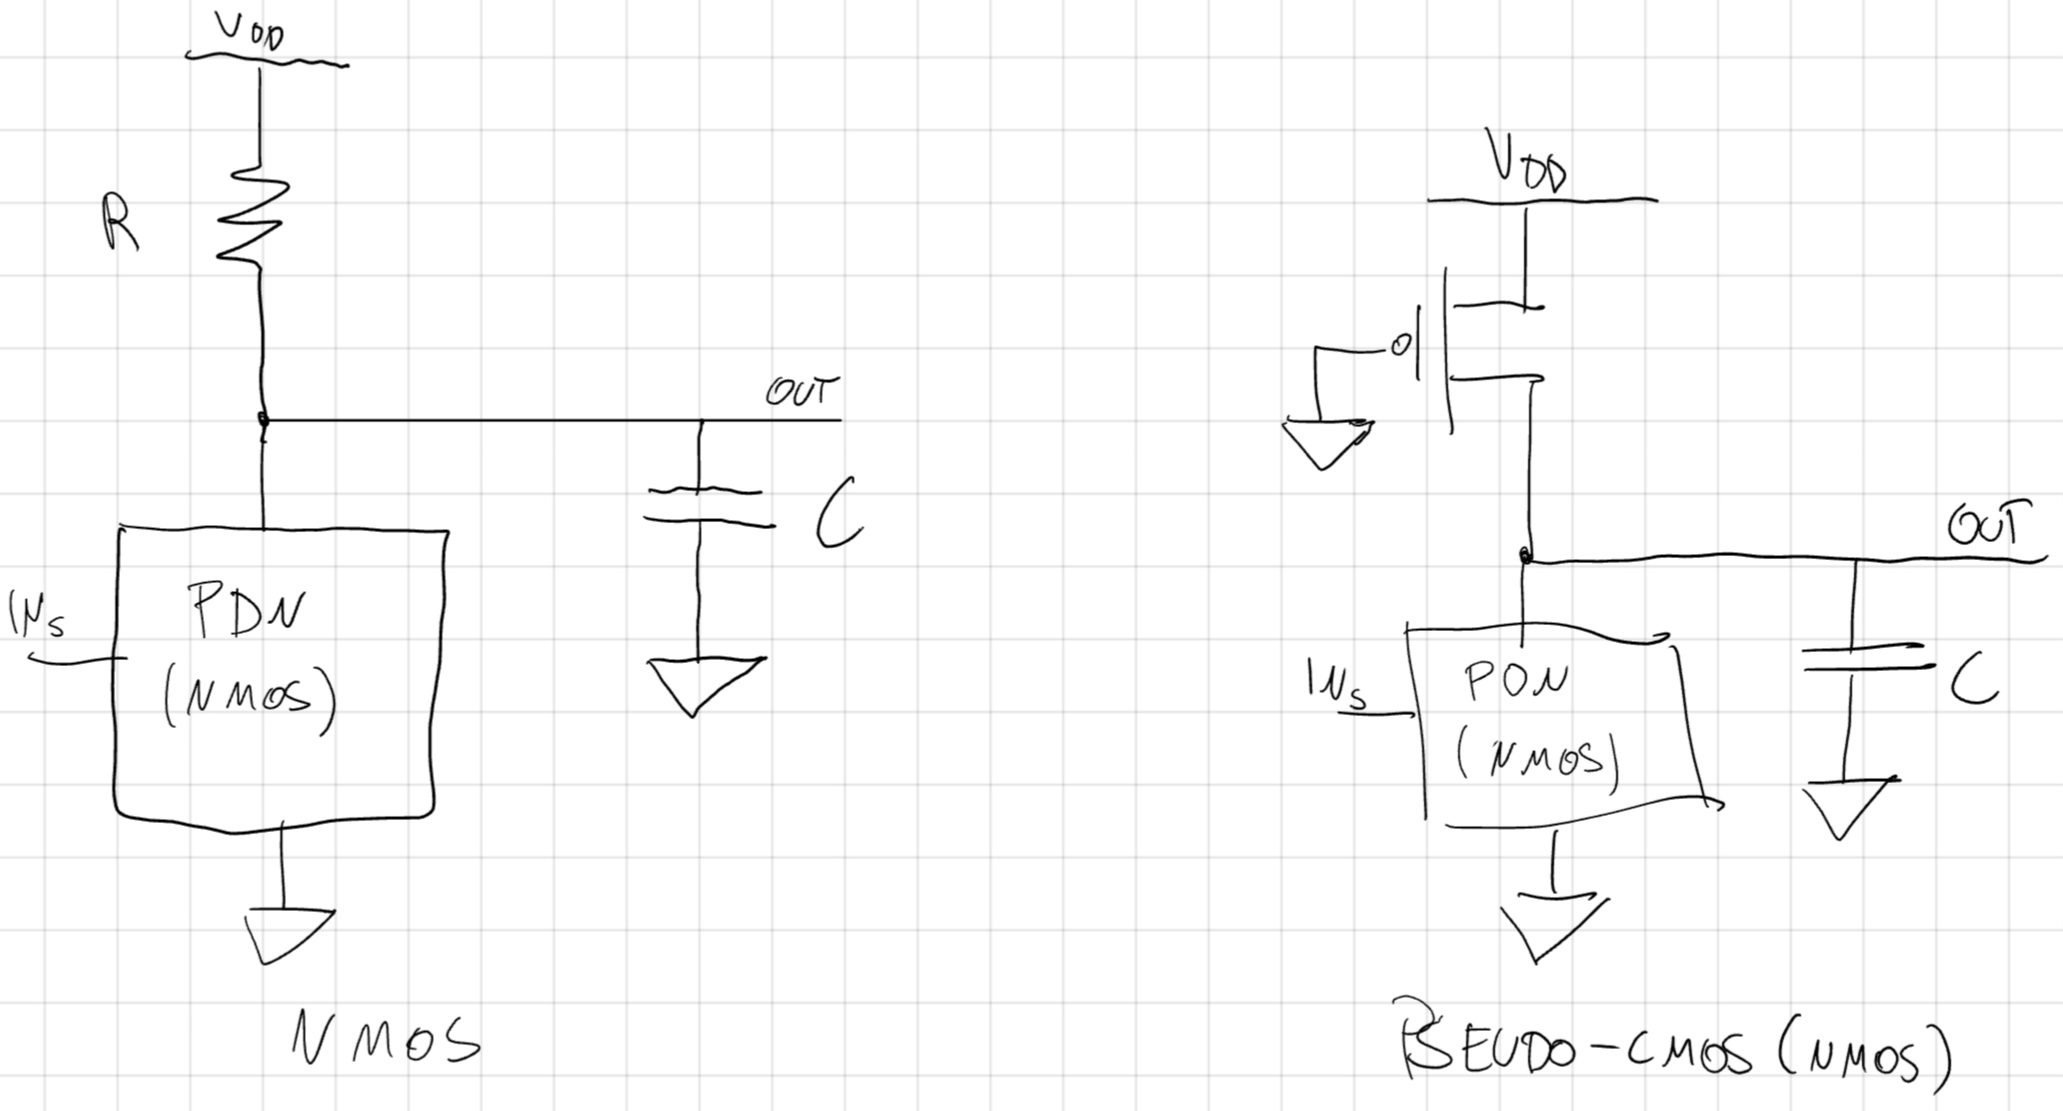 VDD
R
OUT
C
INs
PDN
(NMOS)
NMOS
VDD
OUT
INs
PDN
(NMOS)
C
PSEUDO-CMOS (NMOS)